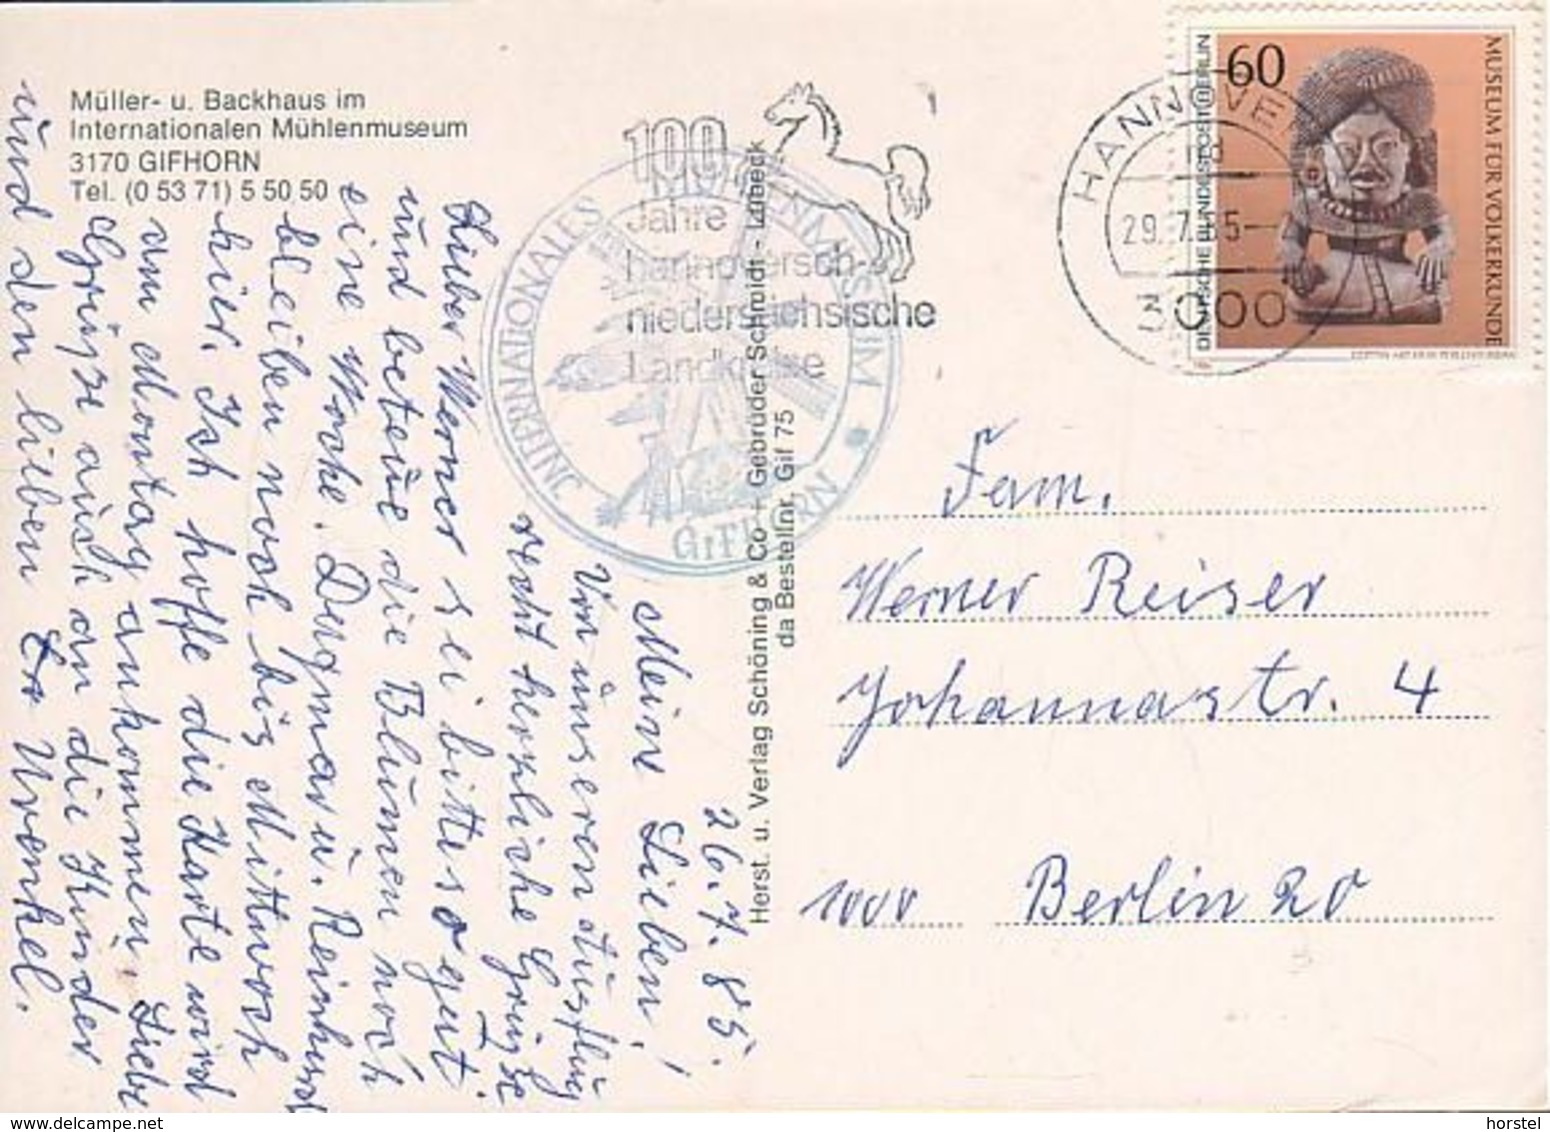 Müller- u. Backhaus im
Internationalen Mühlenmuseum
3170 GIFHORN
Tel. (0 53 71) 5 50 50
26.7.85.
Meine Lieben!
Von unseren Ausflug
recht herzliche Grüsse
Lieber Werner sei bitte so gut
und beteue die Blumen noch
eine Woche. Dagmar u. Reinhard
bleiben noch bis Mittwoch
hier. Ich hoffe die Karte wird
am Montag ankommen. Liebe
Grüße auch an die Kinder
und den lieben Urenkel.
Herst. u. Verlag Schöning & Co + Gebrüder Schmidt - Lübeck
da Bestellnr. Gif 75
INTERNATIONALES MÜHLENMUSEUM
GIFHORN
100
Jahre
hannoversch-
niedersächsische
Landkreise
HANNOVER
29.7.
3000
60
DEUTSCHE BUNDESPOST BERLIN
MUSEUM FÜR VÖLKERKUNDE
Fam.
Werner Reiser
Johannastr. 4
1000 Berlin 20
www.delcampe.net
horstel